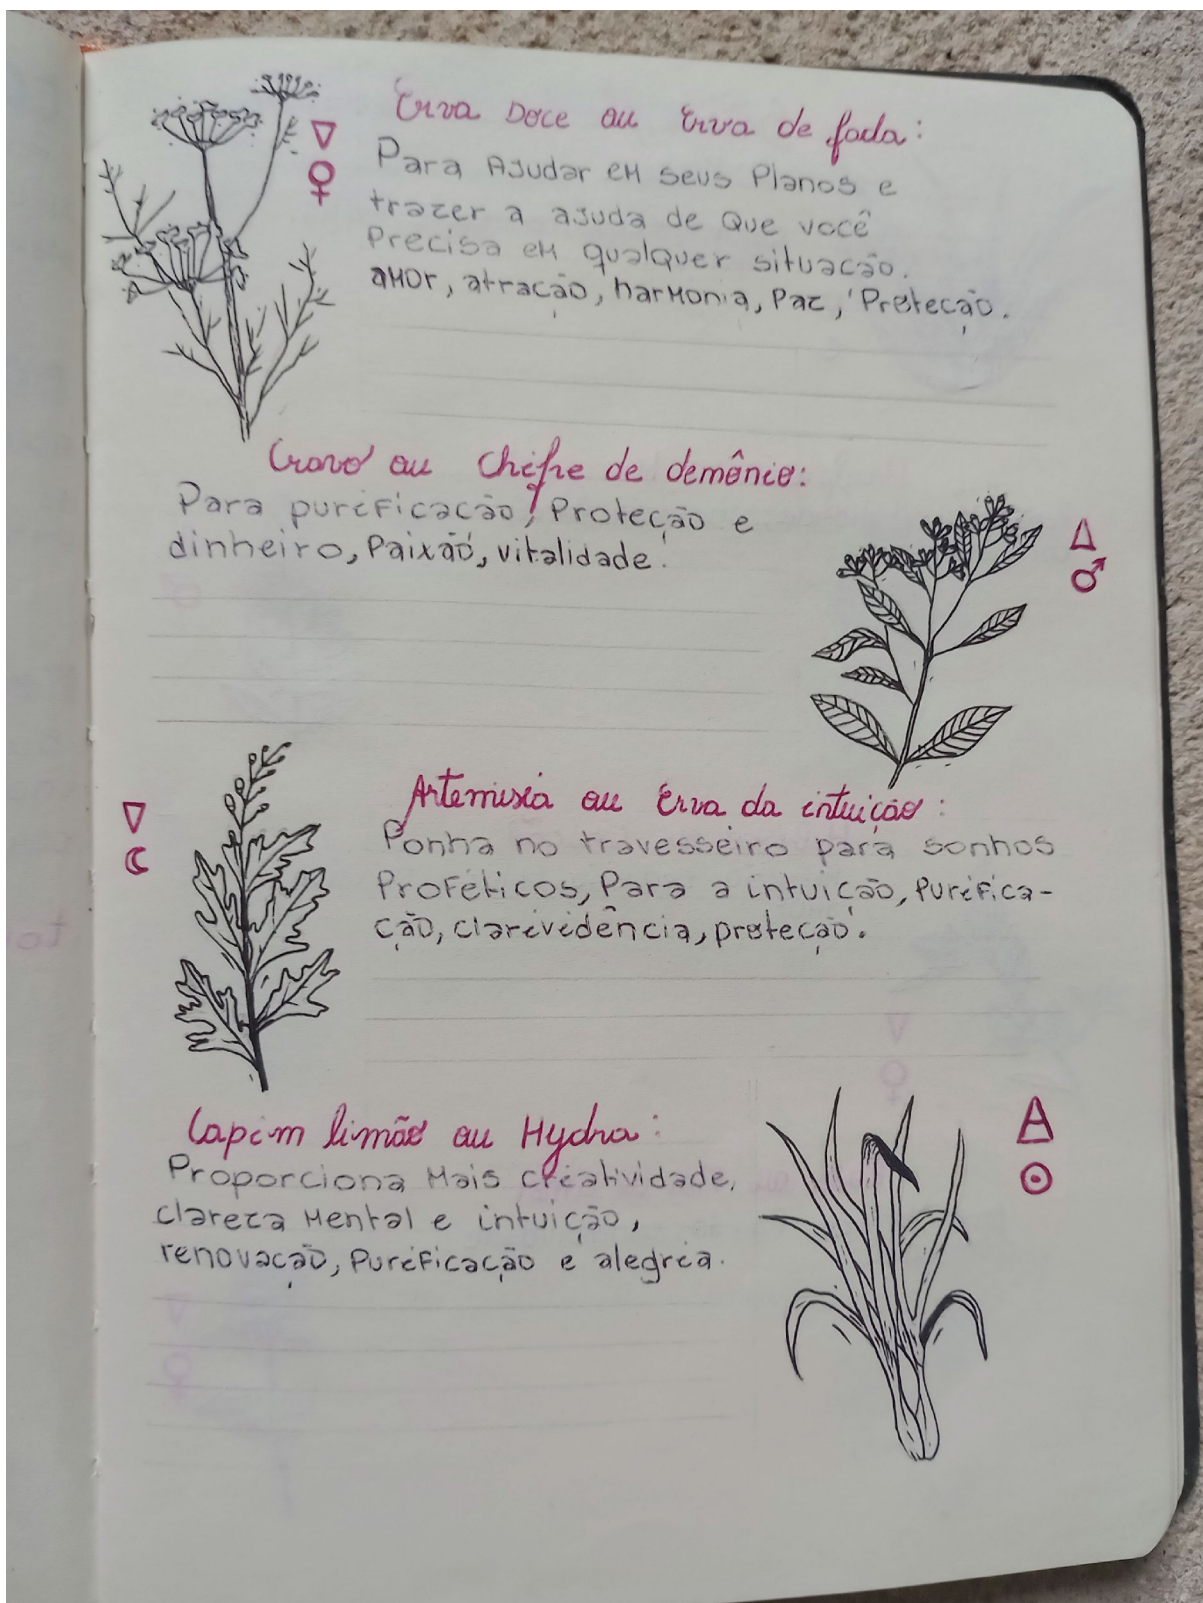 Erva Doce ou Erva de fada:
Para Ajudar em seus Planos e
trazer a ajuda de que você
Precisa em qualquer situação.
amor, atração, harmonia, Paz, Proteção.
Cravo ou Chifre de demônio:
Para purificação, Proteção e
dinheiro, Paixão, vitalidade.
Artemisia ou Erva da intuição:
Ponha no travesseiro para sonhos
Proféticos, Para a intuição, Purifica-
ção, clarividência, proteção.
Capim limão ou Hydra:
Proporciona Mais criatividade,
clareza Mental e intuição,
renovação, Purificação e alegria.